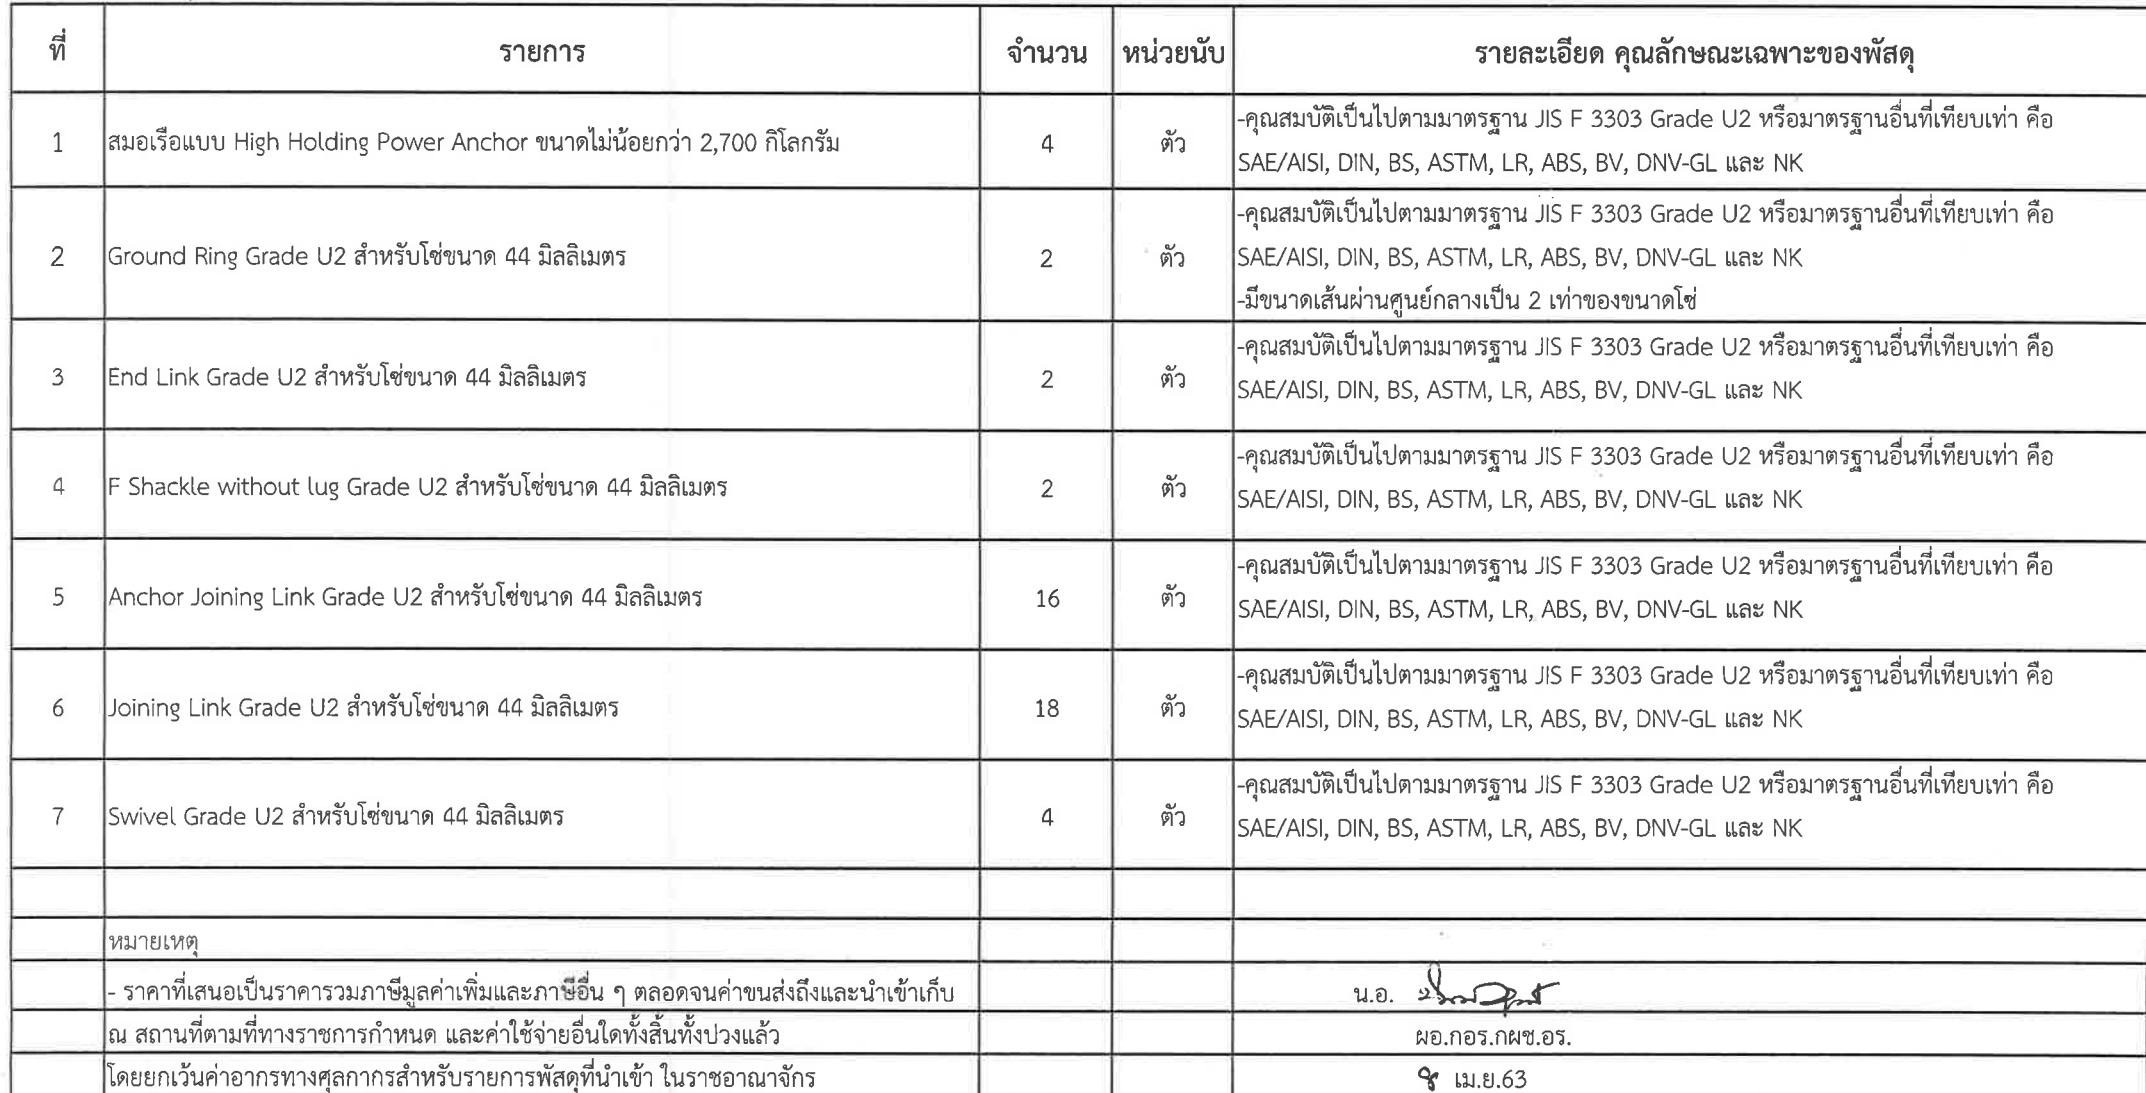 ที่ รายการ จำนวน หน่วยนับ รายละเอียด คุณลักษณะเฉพาะของพัสดุ
1 สมอเรือแบบ High Holding Power Anchor ขนาดไม่น้อยกว่า 2,700 กิโลกรัม 4 ตัว -คุณสมบัติเป็นไปตามมาตรฐาน JIS F 3303 Grade U2 หรือมาตรฐานอื่นที่เทียบเท่า คือ
SAE/AISI, DIN, BS, ASTM, LR, ABS, BV, DNV-GL และ NK
2 Ground Ring Grade U2 สำหรับโซ่ขนาด 44 มิลลิเมตร 2 ตัว -คุณสมบัติเป็นไปตามมาตรฐาน JIS F 3303 Grade U2 หรือมาตรฐานอื่นที่เทียบเท่า คือ
SAE/AISI, DIN, BS, ASTM, LR, ABS, BV, DNV-GL และ NK
-มีขนาดเส้นผ่านศูนย์กลางเป็น 2 เท่าของขนาดโซ่
3 End Link Grade U2 สำหรับโซ่ขนาด 44 มิลลิเมตร 2 ตัว -คุณสมบัติเป็นไปตามมาตรฐาน JIS F 3303 Grade U2 หรือมาตรฐานอื่นที่เทียบเท่า คือ
SAE/AISI, DIN, BS, ASTM, LR, ABS, BV, DNV-GL และ NK
4 F Shackle without lug Grade U2 สำหรับโซ่ขนาด 44 มิลลิเมตร 2 ตัว -คุณสมบัติเป็นไปตามมาตรฐาน JIS F 3303 Grade U2 หรือมาตรฐานอื่นที่เทียบเท่า คือ
SAE/AISI, DIN, BS, ASTM, LR, ABS, BV, DNV-GL และ NK
5 Anchor Joining Link Grade U2 สำหรับโซ่ขนาด 44 มิลลิเมตร 16 ตัว -คุณสมบัติเป็นไปตามมาตรฐาน JIS F 3303 Grade U2 หรือมาตรฐานอื่นที่เทียบเท่า คือ
SAE/AISI, DIN, BS, ASTM, LR, ABS, BV, DNV-GL และ NK
6 Joining Link Grade U2 สำหรับโซ่ขนาด 44 มิลลิเมตร 18 ตัว -คุณสมบัติเป็นไปตามมาตรฐาน JIS F 3303 Grade U2 หรือมาตรฐานอื่นที่เทียบเท่า คือ
SAE/AISI, DIN, BS, ASTM, LR, ABS, BV, DNV-GL และ NK
7 Swivel Grade U2 สำหรับโซ่ขนาด 44 มิลลิเมตร 4 ตัว -คุณสมบัติเป็นไปตามมาตรฐาน JIS F 3303 Grade U2 หรือมาตรฐานอื่นที่เทียบเท่า คือ
SAE/AISI, DIN, BS, ASTM, LR, ABS, BV, DNV-GL และ NK
หมายเหตุ
- ราคาที่เสนอเป็นราคารวมภาษีมูลค่าเพิ่มและภาษีอื่น ๆ ตลอดจนค่าขนส่งถึงและนำเข้าเก็บ น.อ.
ณ สถานที่ตามที่ทางราชการกำหนด และค่าใช้จ่ายอื่นใดทั้งสิ้นทั้งปวงแล้ว ผอ.กอร.กผช.อร.
โดยยกเว้นค่าอากรทางศุลกากรสำหรับรายการพัสดุที่นำเข้า ในราชอาณาจักร ๘ เม.ย.63